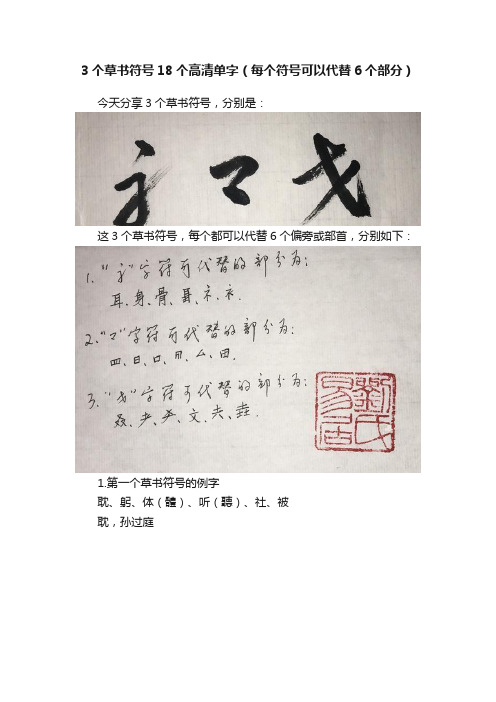 3个草书符号18个高清单字（每个符号可以代替6个部分）
今天分享3个草书符号，分别是：
这3个草书符号，每个都可以代替6个偏旁或部首，分别如下：
1、“ ”字符可代替的部分为：
耳、身、骨、礻、衤.
2、“マ”字符可代替的部分为：
四、日、口、用、厶、田.
3、“ ”字符可代替的部分为：
文、夫
劉氏
1.第一个草书符号的例字
耽、躬、体（體）、听（聽）、社、被
耽，孙过庭